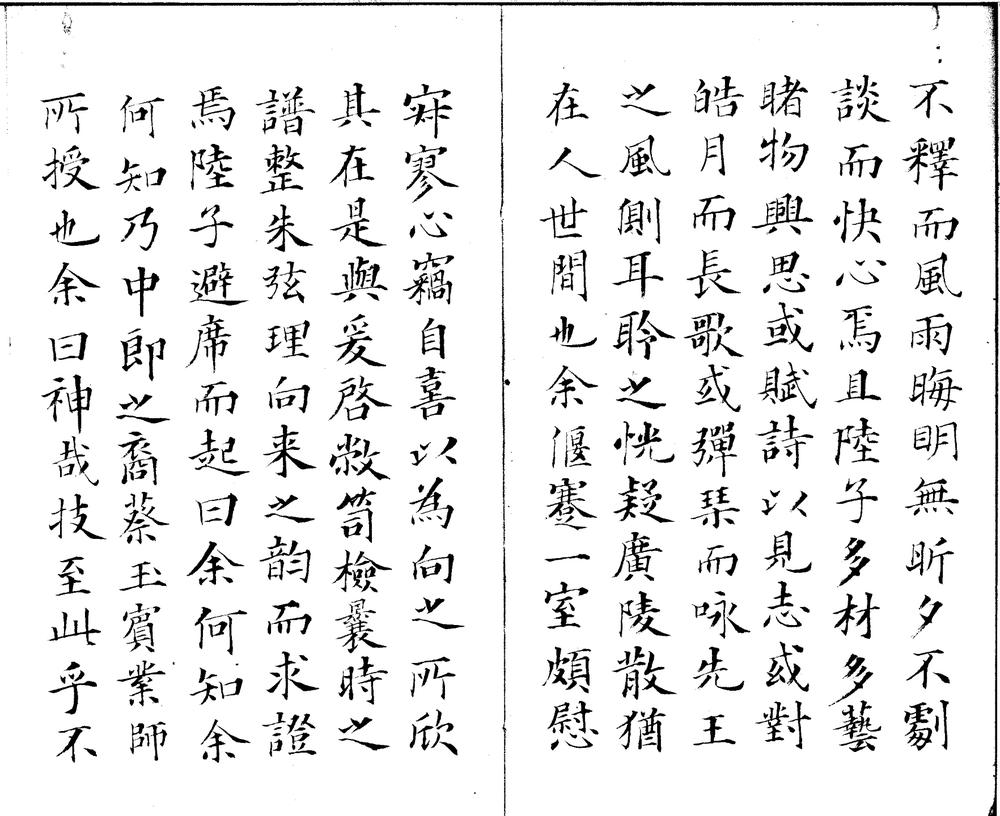 不釋而風雨晦明無昕夕不劇
談而快心焉且陸子多材多藝
睹物興思或賦詩以見志或對
皓月而長歌或彈琹而咏先王
之風側耳聆之恍疑廣陵散猶
在人世間也余偃蹇一室頗慰
寂寥心竊自喜以為向之所欣
其在是與爰啓敝笥檢曩時之
譜整朱弦理向来之韵而求證
焉陸子避席而起曰余何知余
何知乃中郎之裔蔡玉賓業師
所授也余曰神哉技至此乎不